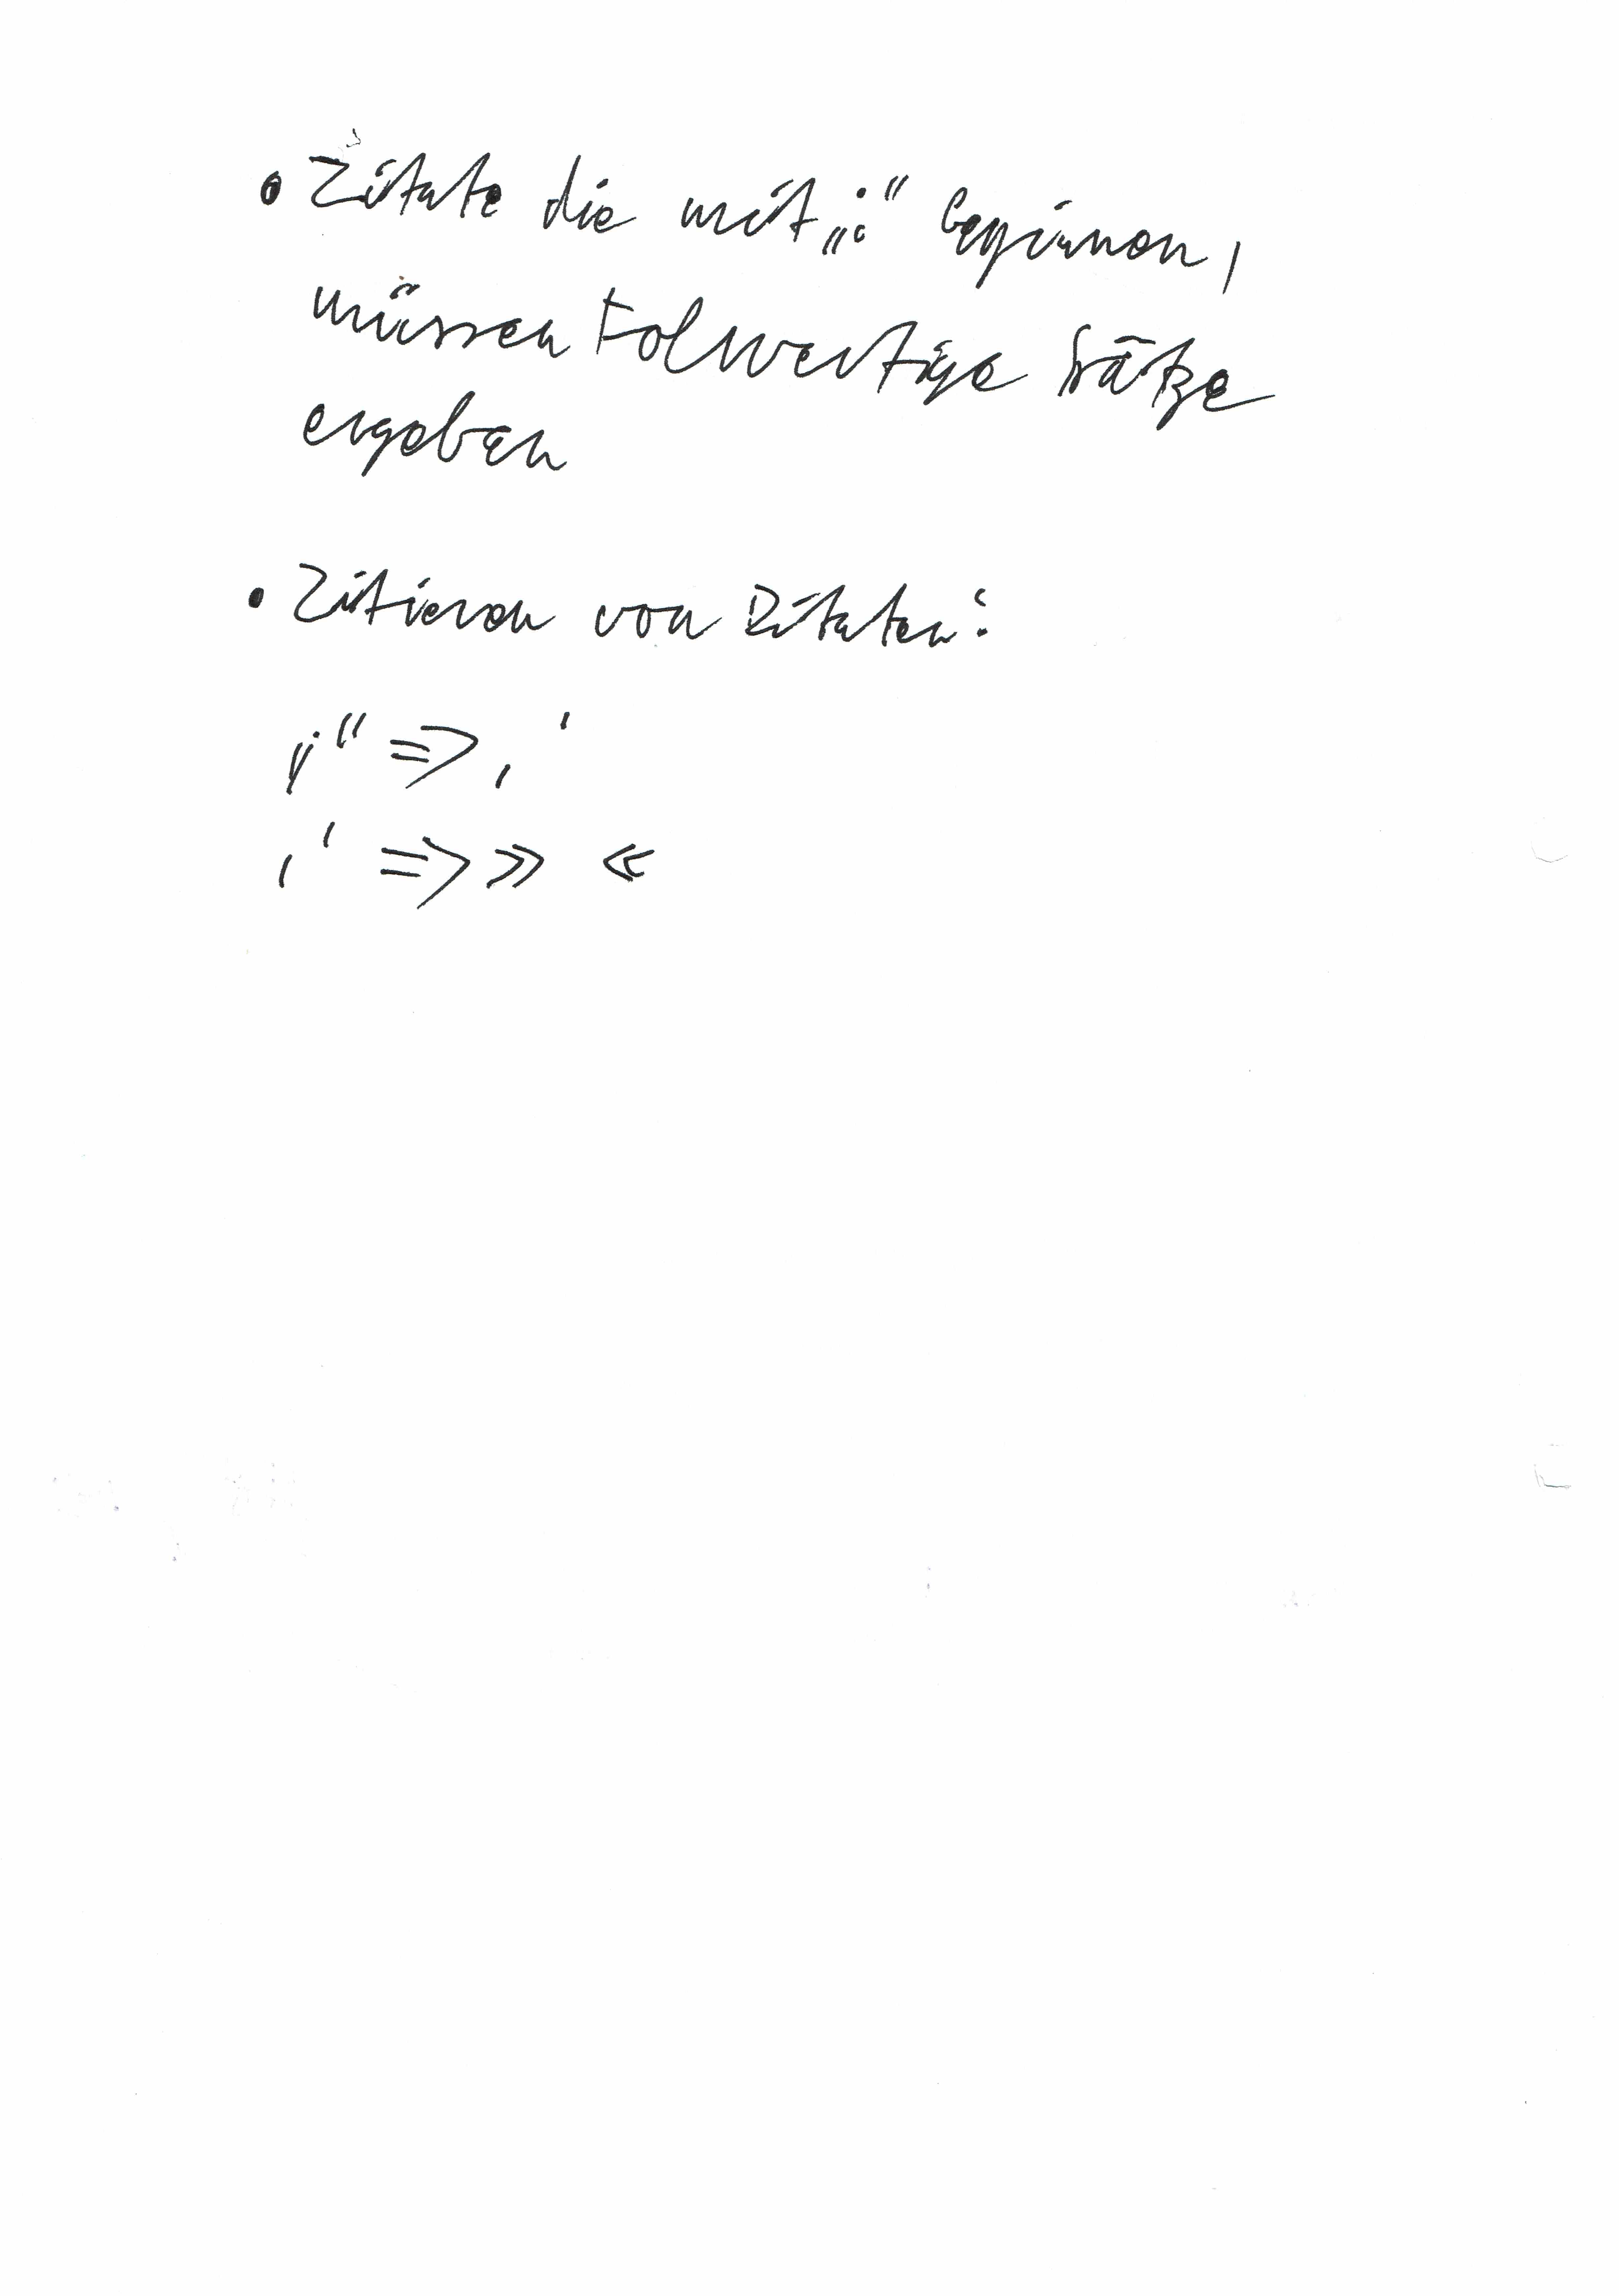 • Zitate die mit „:“ beginnen,
müssen Folwertige Sätze
ergeben
• Zitieren von Zitaten:
„“ => ‚‘
‚‘ => » «